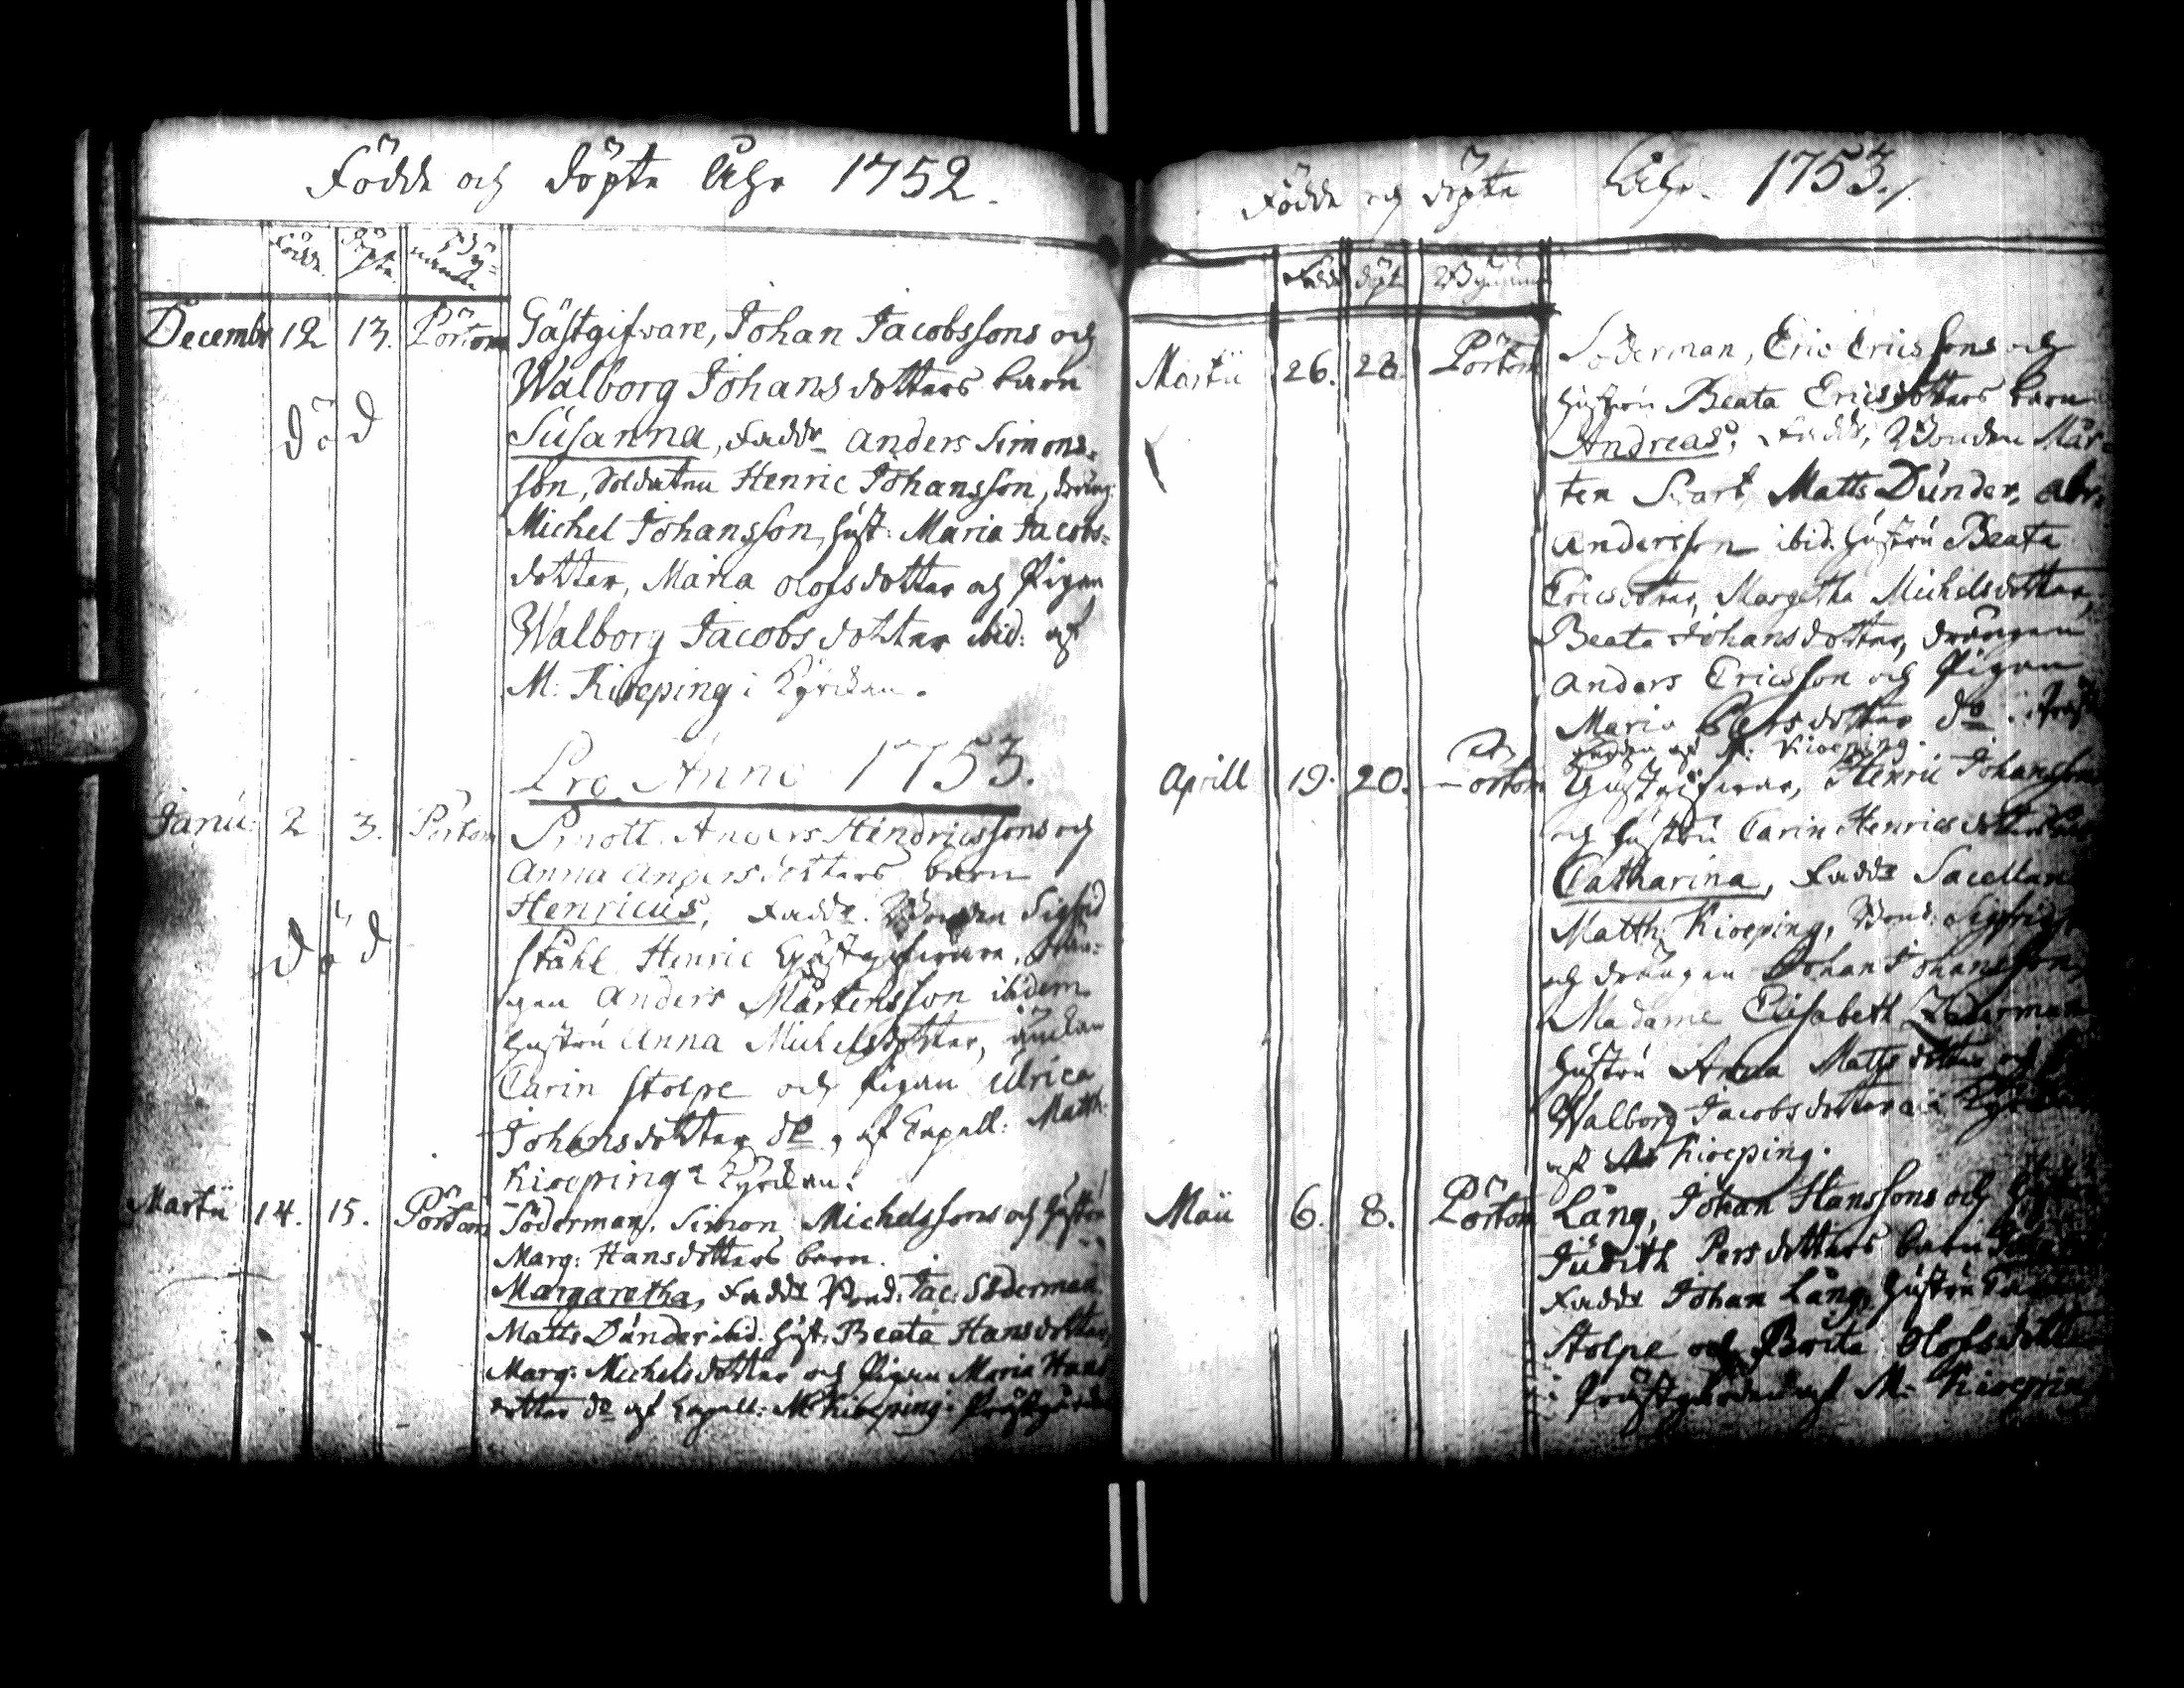 Födde och döpte Åhr 1752.
Födde. Döpte. Bynamn
Decembr 12 13. Pörtom Gästgifvare, Johan Jacobssons och
Walborg Johansdotters barn
död
Susanna, Fadd. Anders Simons-
son, Soldaten Henric Johansson, dräng.
Michel Johansson, Hust: Maria Jacobs-
dotter, Maria Olofsdotter och Pigan
Walborg Jacobsdotter ibid: af
M: Kioeping i Kyrckan.
Pro Anno 1753.
Janu: 2 3. Pörtom Smott. Anders Hindricssons och
Anna Andersdotters barn
Henricus, Fadd. Bonden Sigfrid
död
Ståhl Henric Gästgifvare, drän-
gen Anders Mårtensson ibidem.
Hustru Anna Michelsdotter, änckan
Carin Stolpe och Pigan Ulrica
Johansdotter do, af Capell: Matth:
Kioeping i Kyrckan.
Martii 14. 15. Pörtom Söderman, Simon Michelssons och Hustru
Marg: Hansdotters barn.
Margaretha, Fadd. Bond: Jac: Söderman
Matts Dunder ibid. Hust: Beata Hansdotter,
Marg: Michelsdotter och Pigan Maria Hans
dotter do af Capell: M Kioeping i Prästgården
Födde och döpte Åhr 1753.
Född döpt Bynamn
Martii 26. 28. Pörtom Söderman, Eric Ericssons och
Hustru Beata Ericsdotters barn
Andreas, Fadd. Bonden Mår-
ten Svart, Matts Dunder, Abr:
Andersson ibid. Hustru Beata
Ericsdotter, Margetha Michelsdotter,
Beata Johansdotter, drängen
Anders Ericsson och Pigan
Maria Persdotter do. i Präst
gården af M: Kioeping.
Aprill 19. 20. Pörtom Gästgifvare, Henric Johanssons
och Hustru Carin Henricsdotters
Catharina, Fadd. Sacellan
Matth: Kioeping, Bond: Sigfrid
och drängen Johan Johansson,
Madame Elisabeth
Hustru Anna Mattsdotter och
Walborg Jacobsdotter i
af M: Kioeping.
Maii 6. 8. Pörtom Lång, Johan Hanssons och
Judith Persdotters barn
Fadd. Johan Lång, Hustru
Stolpe och Brita Olofsdotter
i Prästgården af M: Kioeping